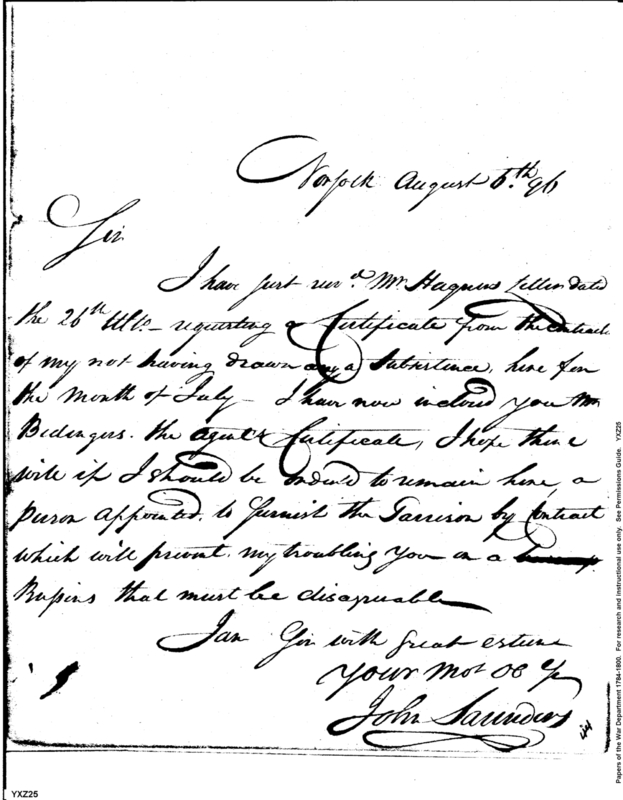 Norfolk August 6.th 96
Sir
I have just recd. Mr Hagners letter dated
the 26th Ulto. - requesting a Certificate from the Contract.
of my not having drawn any Subsistence, here for
the Month of July - I have now inclosed you Mr
Bedingers. the agents Certificate, I hope there
will if I should be ordered to remain here, a
Person Appointed, to furnish the Garrison by Contract
which will prevent. my troubling you on a
Bussins that must be disagreeable
I am Sir with great esteem
Your Mot Ob
John Saunders
YXZ25
Papers of the War Department 1784-1800. For research and instructional use only. See Permissions Guide. YXZ25